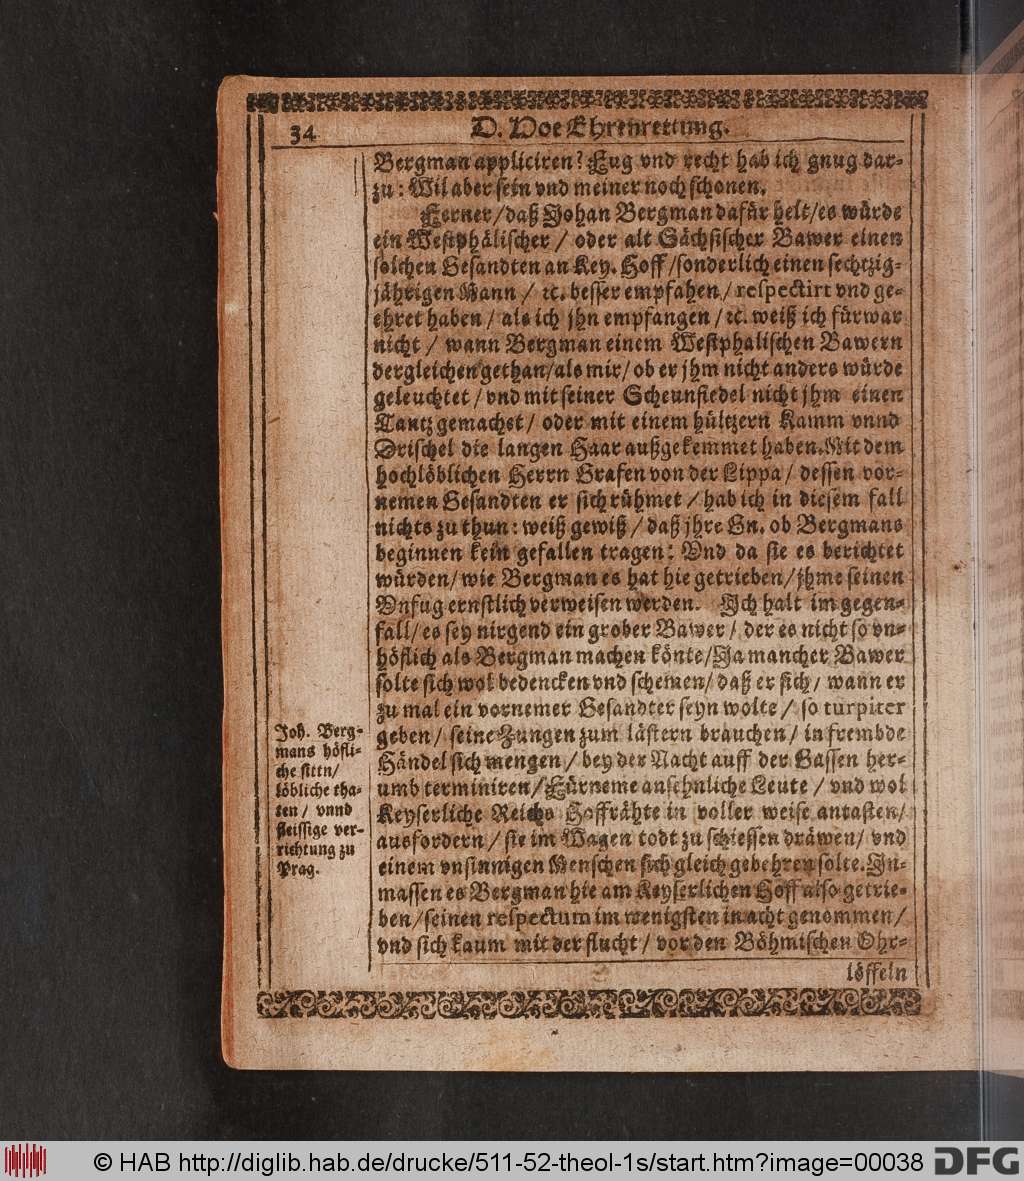 34
D. Hoe Ehrenrettung.
Bergman appliciren? Fug vnd recht hab ich gnug dar-
zu: Wil aber sein vnd meiner noch schonen.
Ferner/daß Johan Bergman dafür helt/es würde
ein Westphälischer / oder alt Sächsischer Bawer einen
solchen Gesandten an Key. Hoff/sonderlich einen sechtzig-
jährigen Mann / ꝛc. besser empfahen/respectirt vnd ge-
ehret haben / als ich jhn empfangen /ꝛc. weiß ich fürwar
nicht / wann Bergman einem Westphalischen Bawern
dergleichen gethan/als mir/ob er jhm nicht anders würde
geleuchtet /vnd mit seiner Scheunfiedel nicht jhm einen
Tantz gemachet/ oder mit einem hültzern Kamm vnnd
Drischel die langen Haar außgekemmet haben. Mit dem
hochlöblichen Herrn Grafen von der Lippa/ dessen vor-
nemen Gesandten er sich rühmet /hab ich in diesem fall
nichts zu thun: weiß gewiß/ daß jhre Gn. ob Bergmans
beginnen kein gefallen tragen: Vnd da sie es berichtet
würden/wie Bergman es hat hie getrieben/jhme seinen
Vnfug ernstlich verweisen werden. Ich halt im gegen-
fall/es sey nirgend ein grober Bawer/ der es nicht so vn-
höflich als Bergman machen könte/Ja mancher Bawer
solte sich wol bedencken vnd schemen/daß er sich/ wann er
zu mal ein vornemer Gesandter seyn wolte/ so turpiter
geben/ seine Zungen zum lästern brauchen/ in frembde
Händel sich mengen/ bey der Nacht auff der Gassen her-
umb terminiren/Fürneme ansehnliche Leute /vnd wol
Keyserliche Reichs Hoffrähte in voller weise antasten/
ausfordern / sie im Wagen todt zu schiessen dräwen/ vnd
einem vnsinnigen Menschen sich gleich gebehren solte. In-
massen es Bergman hie am Keyserlichen Hoff also getrie-
ben/seinen respectum im wenigsten in acht genommen/
vnd sich kaum mit der flucht/ vor den Böhmischen Ohr-
löffeln
Joh. Berg-
mans höfli-
che sittn/
löbliche tha-
ten/ vnnd
fleissige ver-
richtung zu
Prag.
© HAB http://diglib.hab.de/drucke/511-52-theol-1s/start.htm?image=00038
DFG